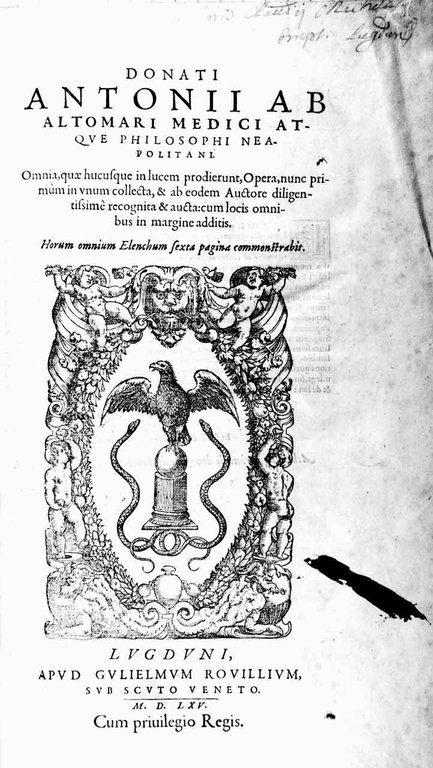 DONATI
ANTONII AB
ALTOMARI MEDICI AT-
QVE PHILOSOPHI NEA-
POLITANI.
Omnia, quæ hucusque in lucem prodierunt, Opera, nunc pri-
mùm in vnum collecta, & ab eodem Auctore diligen-
tissimè recognita & aucta: cum locis omni-
bus in margine additis.
Horum omnium Elenchum sexta pagina commonstrabit.
LVGDVNI,
APVD GVLIELMVM ROVILLIVM,
SVB SCVTO VENETO.
M. D. LXV.
Cum priuilegio Regis.